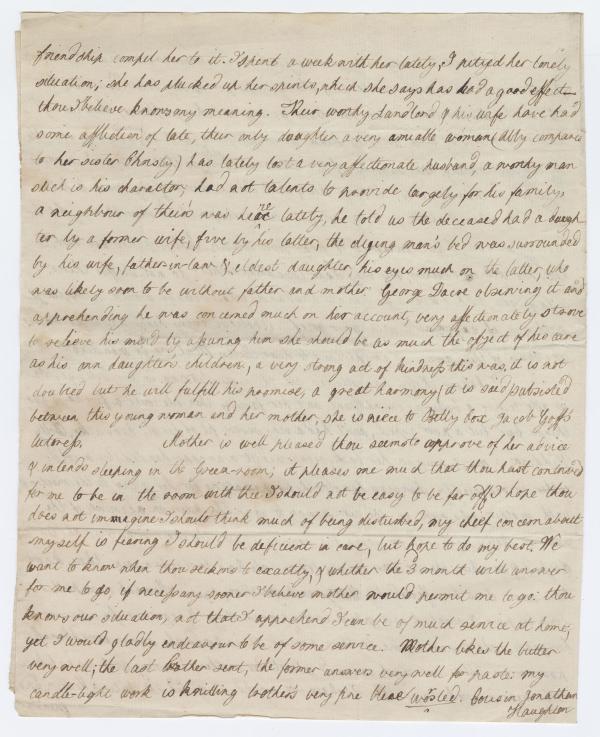 friendship compel her to it. I spent a week with her lately, I pitied her lonely
situation; she has plucked up her spirits, which she says has had a good effect
thou I believe knows my meaning. Their worthy Landlord & his wife have had
some affliction of late, their only daughter a very amiable woman (Ally compared
to her sister Chrisby) has lately lost a very affectionate husband, a worthy man
such is his character, had not talents to provide largely for his family,
a neighbour of theirs was here lately, he told us the deceased had a daugh
ter by a former wife, five by his latter, the diging man's bed was surrounded
by his wife, father-in-law & eldest daughter, his eyes much on the latter, who
was likely soon to be without father and mother. George Dacre observing it and
apprehending he was concerned much on her account, very affectionately strove
to relieve his mind by asuring him she should be as much the object of his care
as his own daughters children, a very strong act of kindness this was, it is not
doubted but he will fulfill his promise, a great harmony (it is said) subsisted
between this young woman and her mother, she is niece to Betty Jacob Goff's
Mother is well pleased thou seems to approve of her advice
& intends sleeping in the Green-room; it pleases me much that thou hast contrived
for me to be in the room with thee I should not be easy to be far off I hope thou
does not immagine I should think much of being disturbed, my cheef concern about
myself is fearing I should be deficient in care, but hope to do my best. We
want to know when thou reckons to exactly, & whether the 3 month will answer
for me to go, if necessary sooner I believe mother would permit me to go: thou
knows our situation, not that I apprehend I can be of much service at home,
yet I would gladly endeavour to be of some service. Mother likes the butter
very well; the last sent, the former answers very well for paste: my
candle-light work is knitting brothers very fine blue worsted. Cousin Jonathan
Haughton